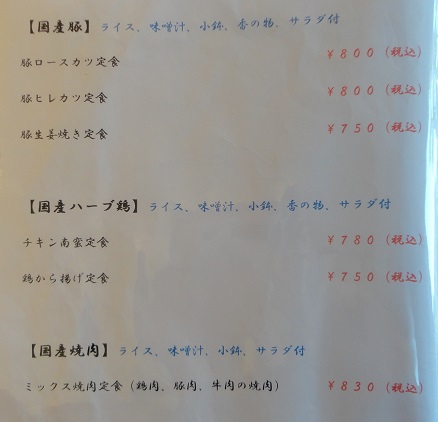 【国産豚】ライス、味噌汁、小鉢、香の物、サラダ付
豚ロースカツ定食 ￥８００（税込）
豚ヒレカツ定食 ￥８００（税込）
豚生姜焼き定食 ￥７５０（税込）
【国産ハーブ鶏】ライス、味噌汁、小鉢、香の物、サラダ付
チキン南蛮定食 ￥７８０（税込）
鶏から揚げ定食 ￥７５０（税込）
【国産焼肉】ライス、味噌汁、小鉢、サラダ付
ミックス焼肉定食（鶏肉、豚肉、牛肉の焼肉） ￥８３０（税込）